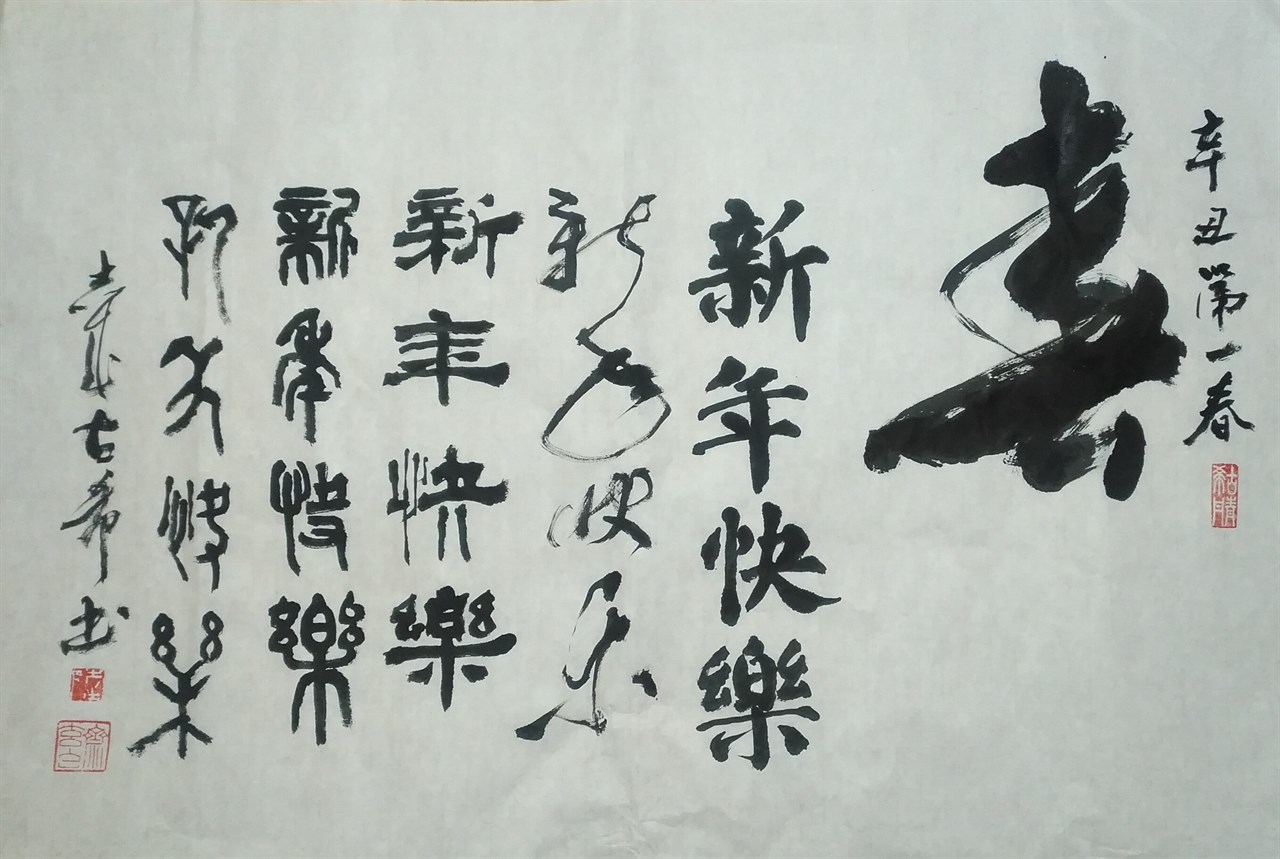 辛丑第一春
春
新年快樂
新年快樂
新年快樂
新年快樂
新年快樂
古希書